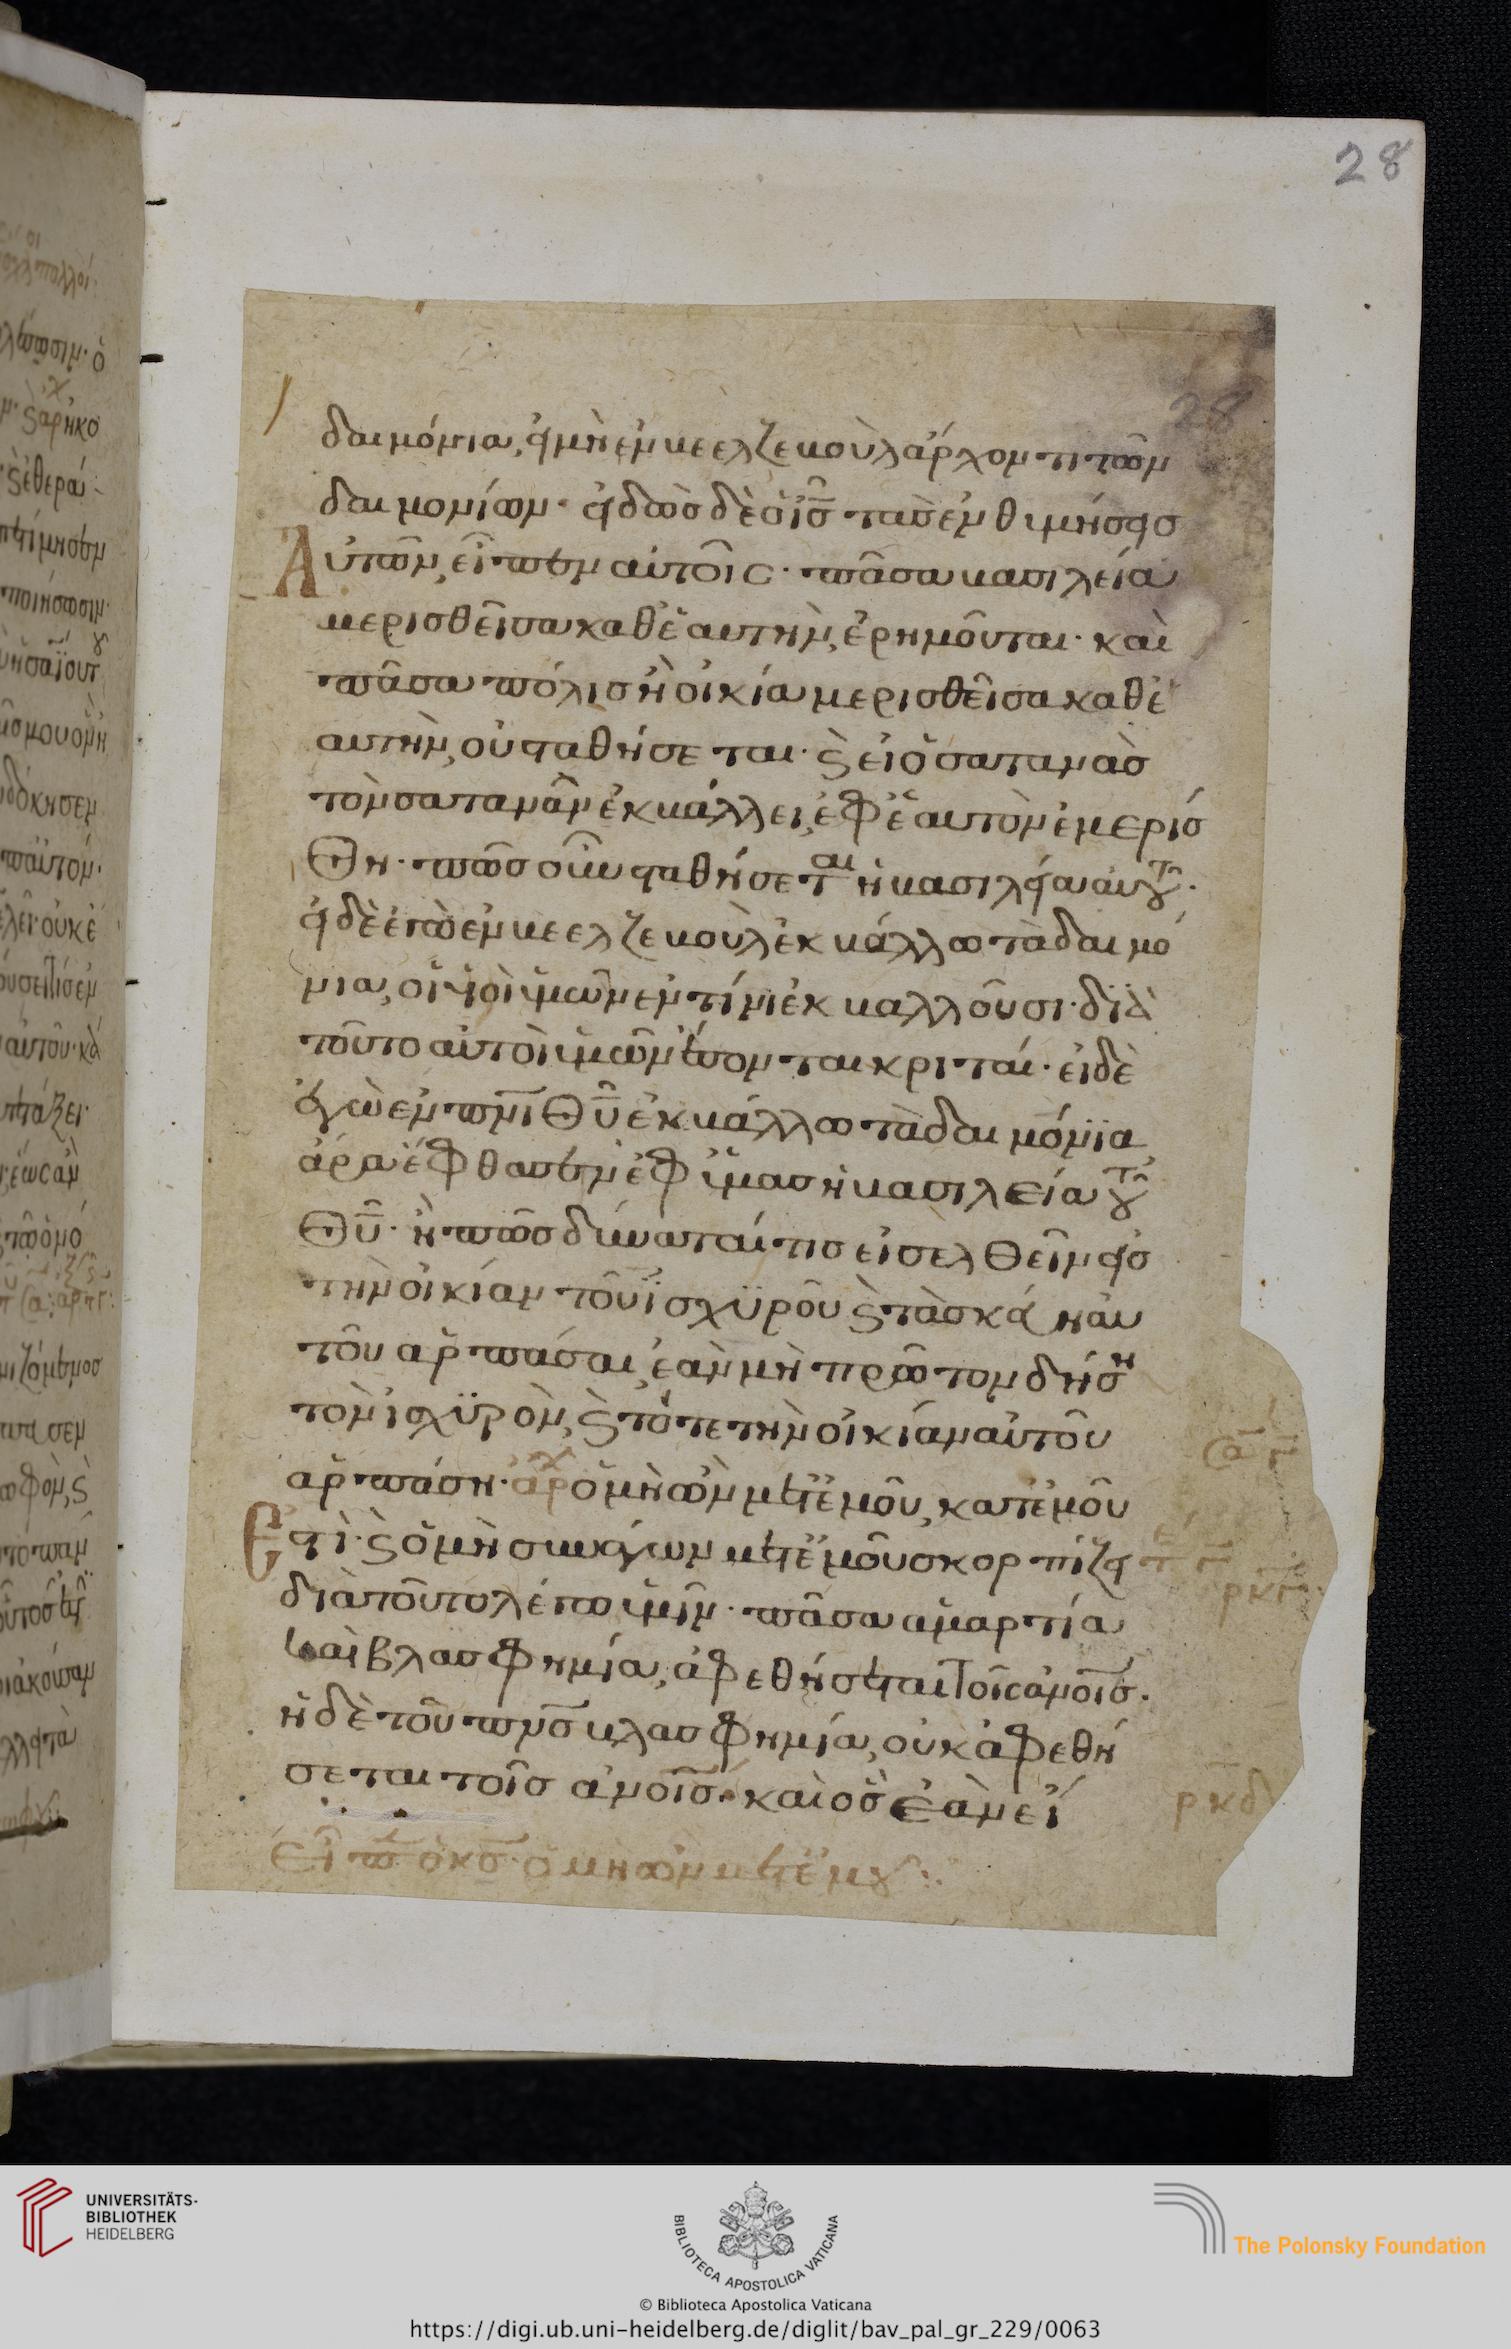 28
28
δαιμόνια, εἰ μὴ ἐν βεελζεβοὺλ ἄρχοντι τῶν
δαιμονίων· εἰδὼσ δὲ ὁ ἰ̅σ̅ τὰσ ἐνθιμήσεισ
Αὐτῶν, εἶπεν αὐτοῖς· πᾶσα βασιλεία
μερισθεῖσα καθ' ἑαυτὴν, ἐρημοῦται· καὶ
πᾶσα πόλισ ἢ οἰκία μερισθεῖσα καθ' ἑ
αυτὴν, οὐ σταθήσεται· ϗ εἰ ὁ σατανὰσ
τὸν σατανᾶν ἐκβάλλει, ἐφ' ἑαυτὸν ἐμερίσ
θη· πῶσ οὖν σταθήσεται ἡ βασιλεία αὐτοῦ·
εἰ δὲ ἐγὼ ἐν βεελζεβοὺλ ἐκβάλλω τὰ δαιμό
νια, οἱ ϋἱοὶ ὑμῶν ἐν τίνι ἐκβαλλοῦσι· δϊὰ
τοῦτο αὐτοὶ ὑμῶν ἔσονται κριταί· εἰ δὲ
ἐγὼ ἐν π̅ν̅ι̅ θ̅υ̅ ἐκβάλλω τὰ δαιμόνϊα,
ἄρα ἔφθασεν ἐφ' ὑμασ ἡ βασιλεία τοῦ
θ̅υ̅· ἢ πῶσ δύναταί τισ εἰσελθεῖν εἰσ
τὴν οἰκίαν τοῦ ϊσχϋροῦ ϗ τὰ σκεύη αὐ
τοῦ ἁρπάσαι, ἐὰν μὴ πρῶτον δήσῃ
τὸν ἰσχϋρὸν, ϗ τότε τὴν οἰκίαν αὐτοῦ
ἁρπάση· ἀρχ ὁ μὴ ὢν μετ' ἐμοῦ, κατ' ἐμοῦ
Ἐστὶ· ϗ ὁ μὴ συνάγων μετ' ἐμοῦ σκορπίζει
διὰ τοῦτο λέγω ὑμῖν· πᾶσα ἁμαρτία
καὶ βλασφημία, ἀφεθήσεται τοῖς ἀ̅ν̅ο̅ι̅σ̅·
ἡ δὲ τοῦ π̅ν̅σ̅ βλασφημία, οὐκ ἀφεθή
σεται τοῖσ ἀ̅ν̅ο̅ι̅σ̅· καὶ ὃσ ἐὰν εἴ
εἶπ ὁ κ̅σ̅· ὁ μὴ ὢν μετ' ἐμοῦ:·
ρκγ
ρκδ
UNIVERSITÄTS-
BIBLIOTHEK
HEIDELBERG
BIBLIOTECA APOSTOLICA VATICANA
The Polonsky Foundation
© Biblioteca Apostolica Vaticana
https://digi.ub.uni-heidelberg.de/diglit/bav_pal_gr_229/0063